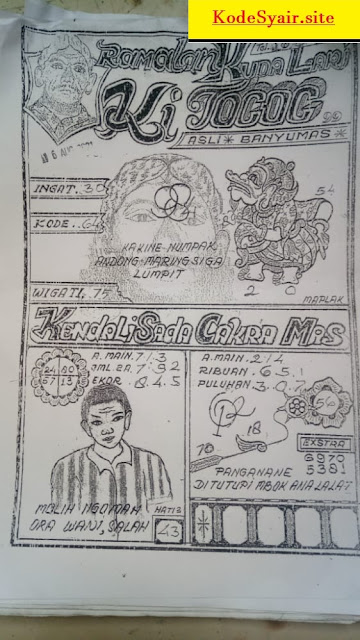 KodeSyair.site
Ramalan Kuda Lari
Ki Togog
ASLI * BANYUMAS *
INGAT..30
KODE..64
54
KAKINE NUMPAK
ANDONG MARING SIGA
LUMPIT
2 0
WIGATI..75
MAPLAK
Kendali Sada Cakra Mas
A.MAIN.7/3
JML 2A.7:92
EKOR .0.4.5
24 80
57 13
MULIH NGOMAH
ORA WANI, SALAH
HATI2
43
A.MAIN.2/4
RIBUAN.6 5.1
PULUHAN.3.0.7
56
18
70
EKSTRA
6970
5381
PANGANANE
DITUTUPI MBOK ANA LALAT